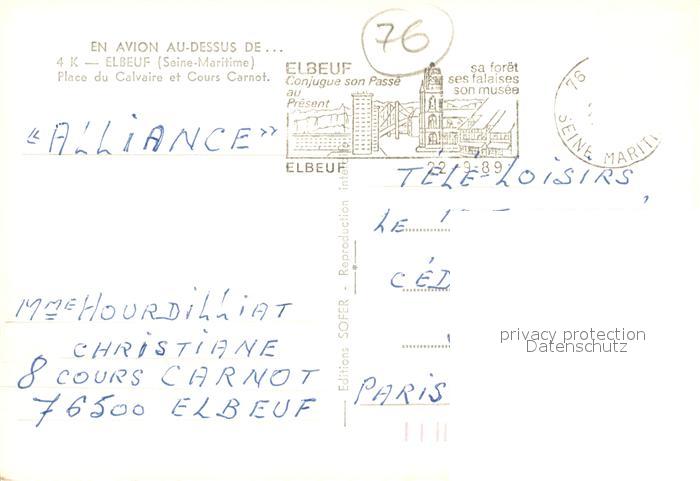 76
EN AVION AU-DESSUS DE...
4 K — ELBEUF (Seine-Maritime)
Place du Calvaire et Cours Carnot.
ELBEUF
Conjugue son Passé
au
Présent
sa forêt
ses falaises
son musée
ELBEUF 22-9-89
76
SEINE MARITI
"ALLIANCE"
TÉLÉ-LOISIRS
LE
CÉD
PARIS
MME HOURDILLIAT
CHRISTIANE
8 COURS CARNOT
76500 ELBEUF
Editions SOFER - Reproduction
privacy protection
Datenschutz